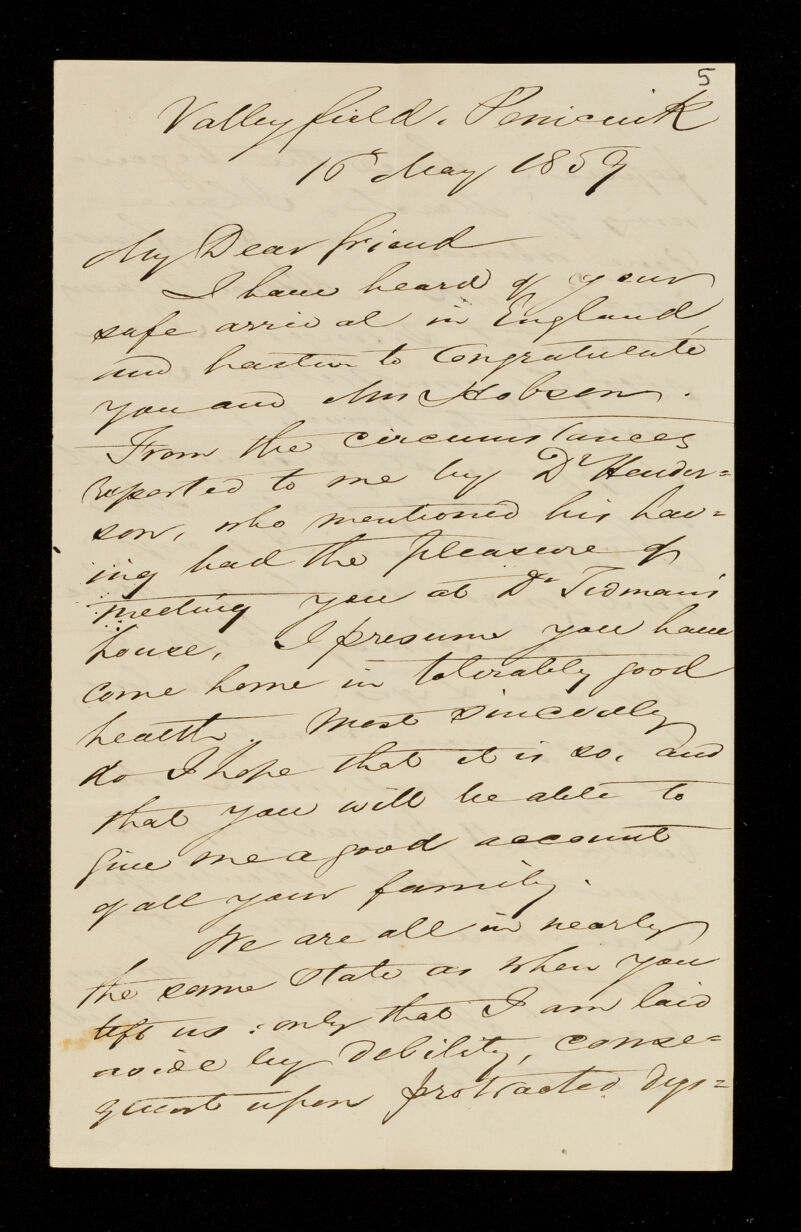 5
Valleyfield, Penicuik
16th May 1859
My Dear friend
I have heard of your
safe arrival in England,
and hasten to Congratulate
you and Mrs Hobson.
From the circumstances
reported to me by Dr Hender=
son, who mentioned his hav=
ing had the pleasure of
meeting you at Dr Tidman's
house, I presume you have
come home in tolerably good
health. Most sincerely
do I hope that it is so, and
that you will be able to
give me a good account
of all your family.
We are all in nearly
the same state as when you
left us: only that I am laid
aside by debility, conse=
quent upon protracted Dys=